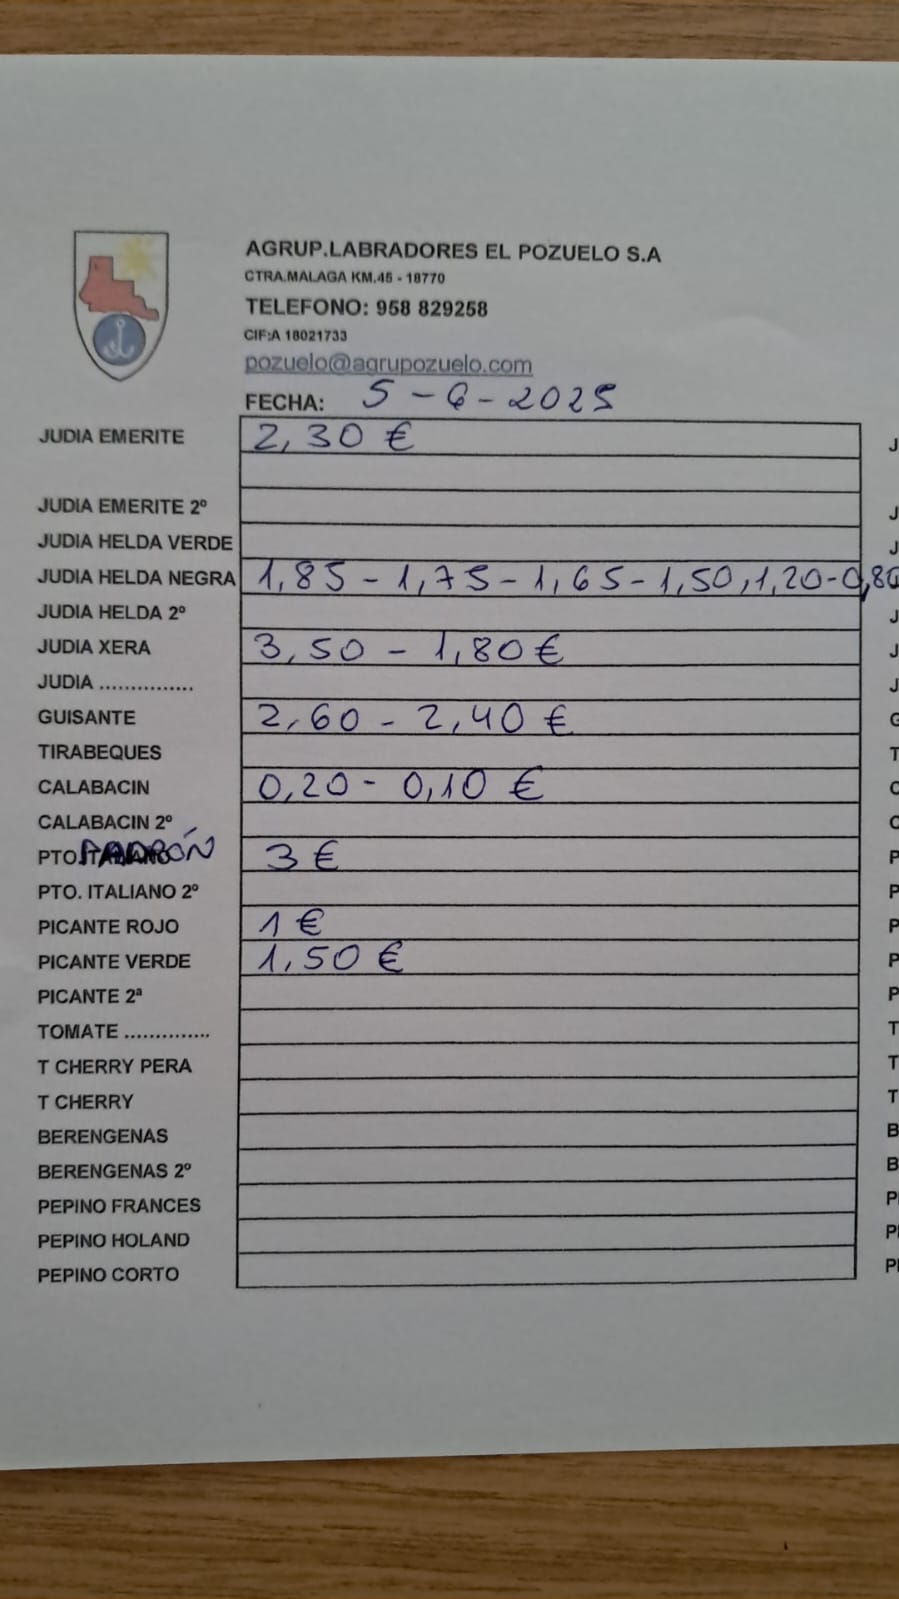 AGRUP.LABRADORES EL POZUELO S.A
CTRA.MALAGA KM.45 - 18770
TELEFONO: 958 829258
CIF:A 18021733
pozuelo@agrupozuelo.com
FECHA: 5-6-2025
JUDIA EMERITE 2,30 € J
JUDIA EMERITE 2º J
JUDIA HELDA VERDE J
JUDIA HELDA NEGRA 1,85 - 1,75 - 1,65 - 1,50, 1,20 - 0,80
JUDIA HELDA 2º J
JUDIA XERA 3,50 - 1,80 € J
JUDIA .............. J
GUISANTE 2,60 - 2,40 € G
TIRABEQUES T
CALABACIN 0,20 - 0,10 € C
CALABACIN 2º C
PTO. PADRÓN 3 € P
PTO. ITALIANO 2º P
PICANTE ROJO 1 € P
PICANTE VERDE 1,50 € P
PICANTE 2ª P
TOMATE .............. T
T CHERRY PERA T
T CHERRY T
BERENGENAS B
BERENGENAS 2º B
PEPINO FRANCES
PEPINO HOLAND
PEPINO CORTO